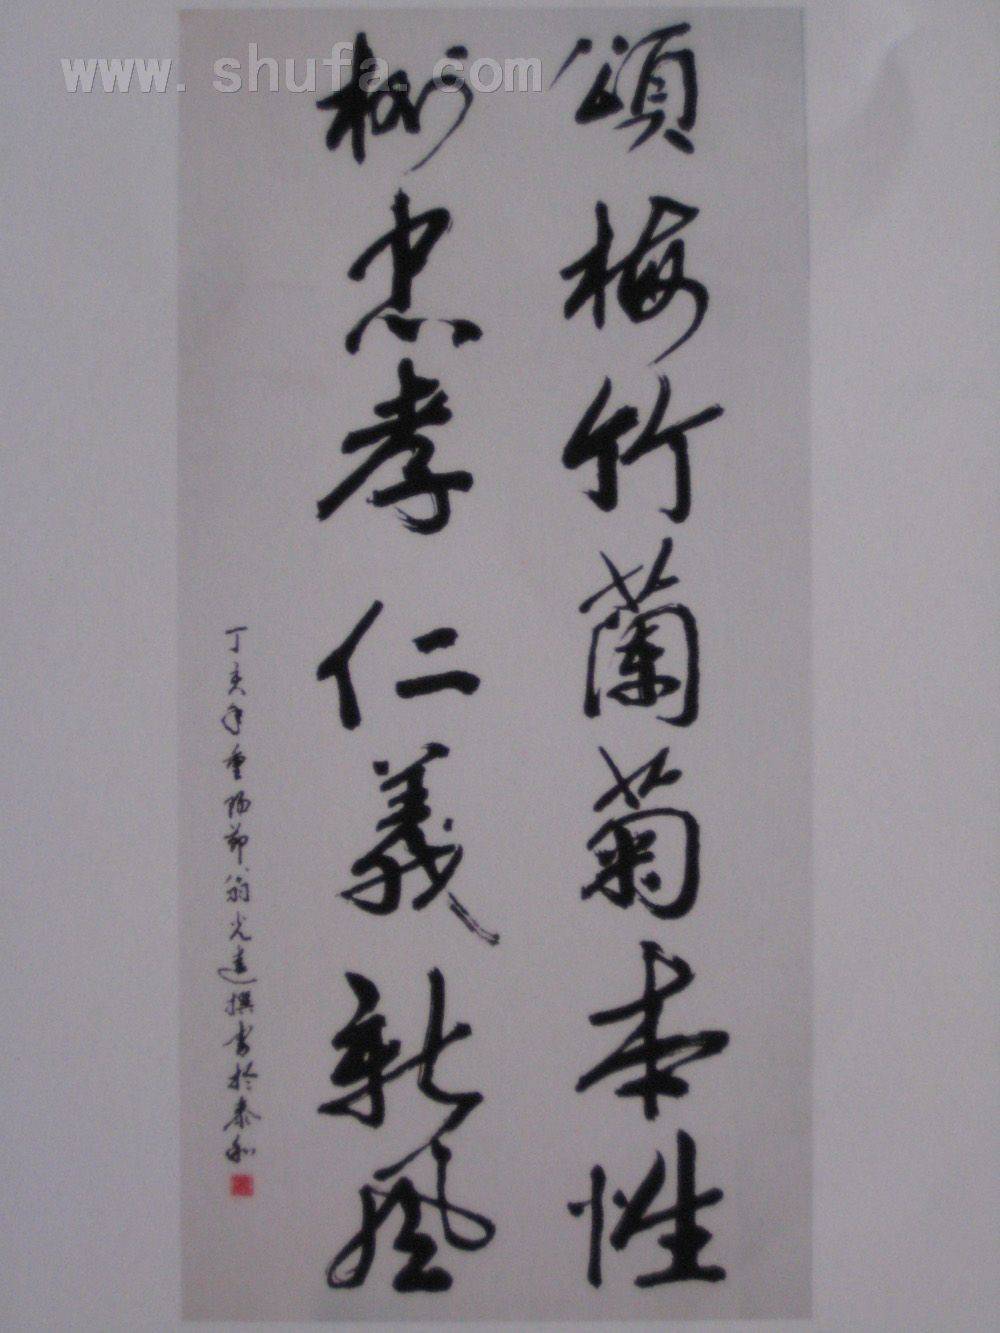 www.shufa.com
頌梅竹蘭菊本性
樹忠孝仁義新風
丁亥年重陽節翁光達撰書於泰和